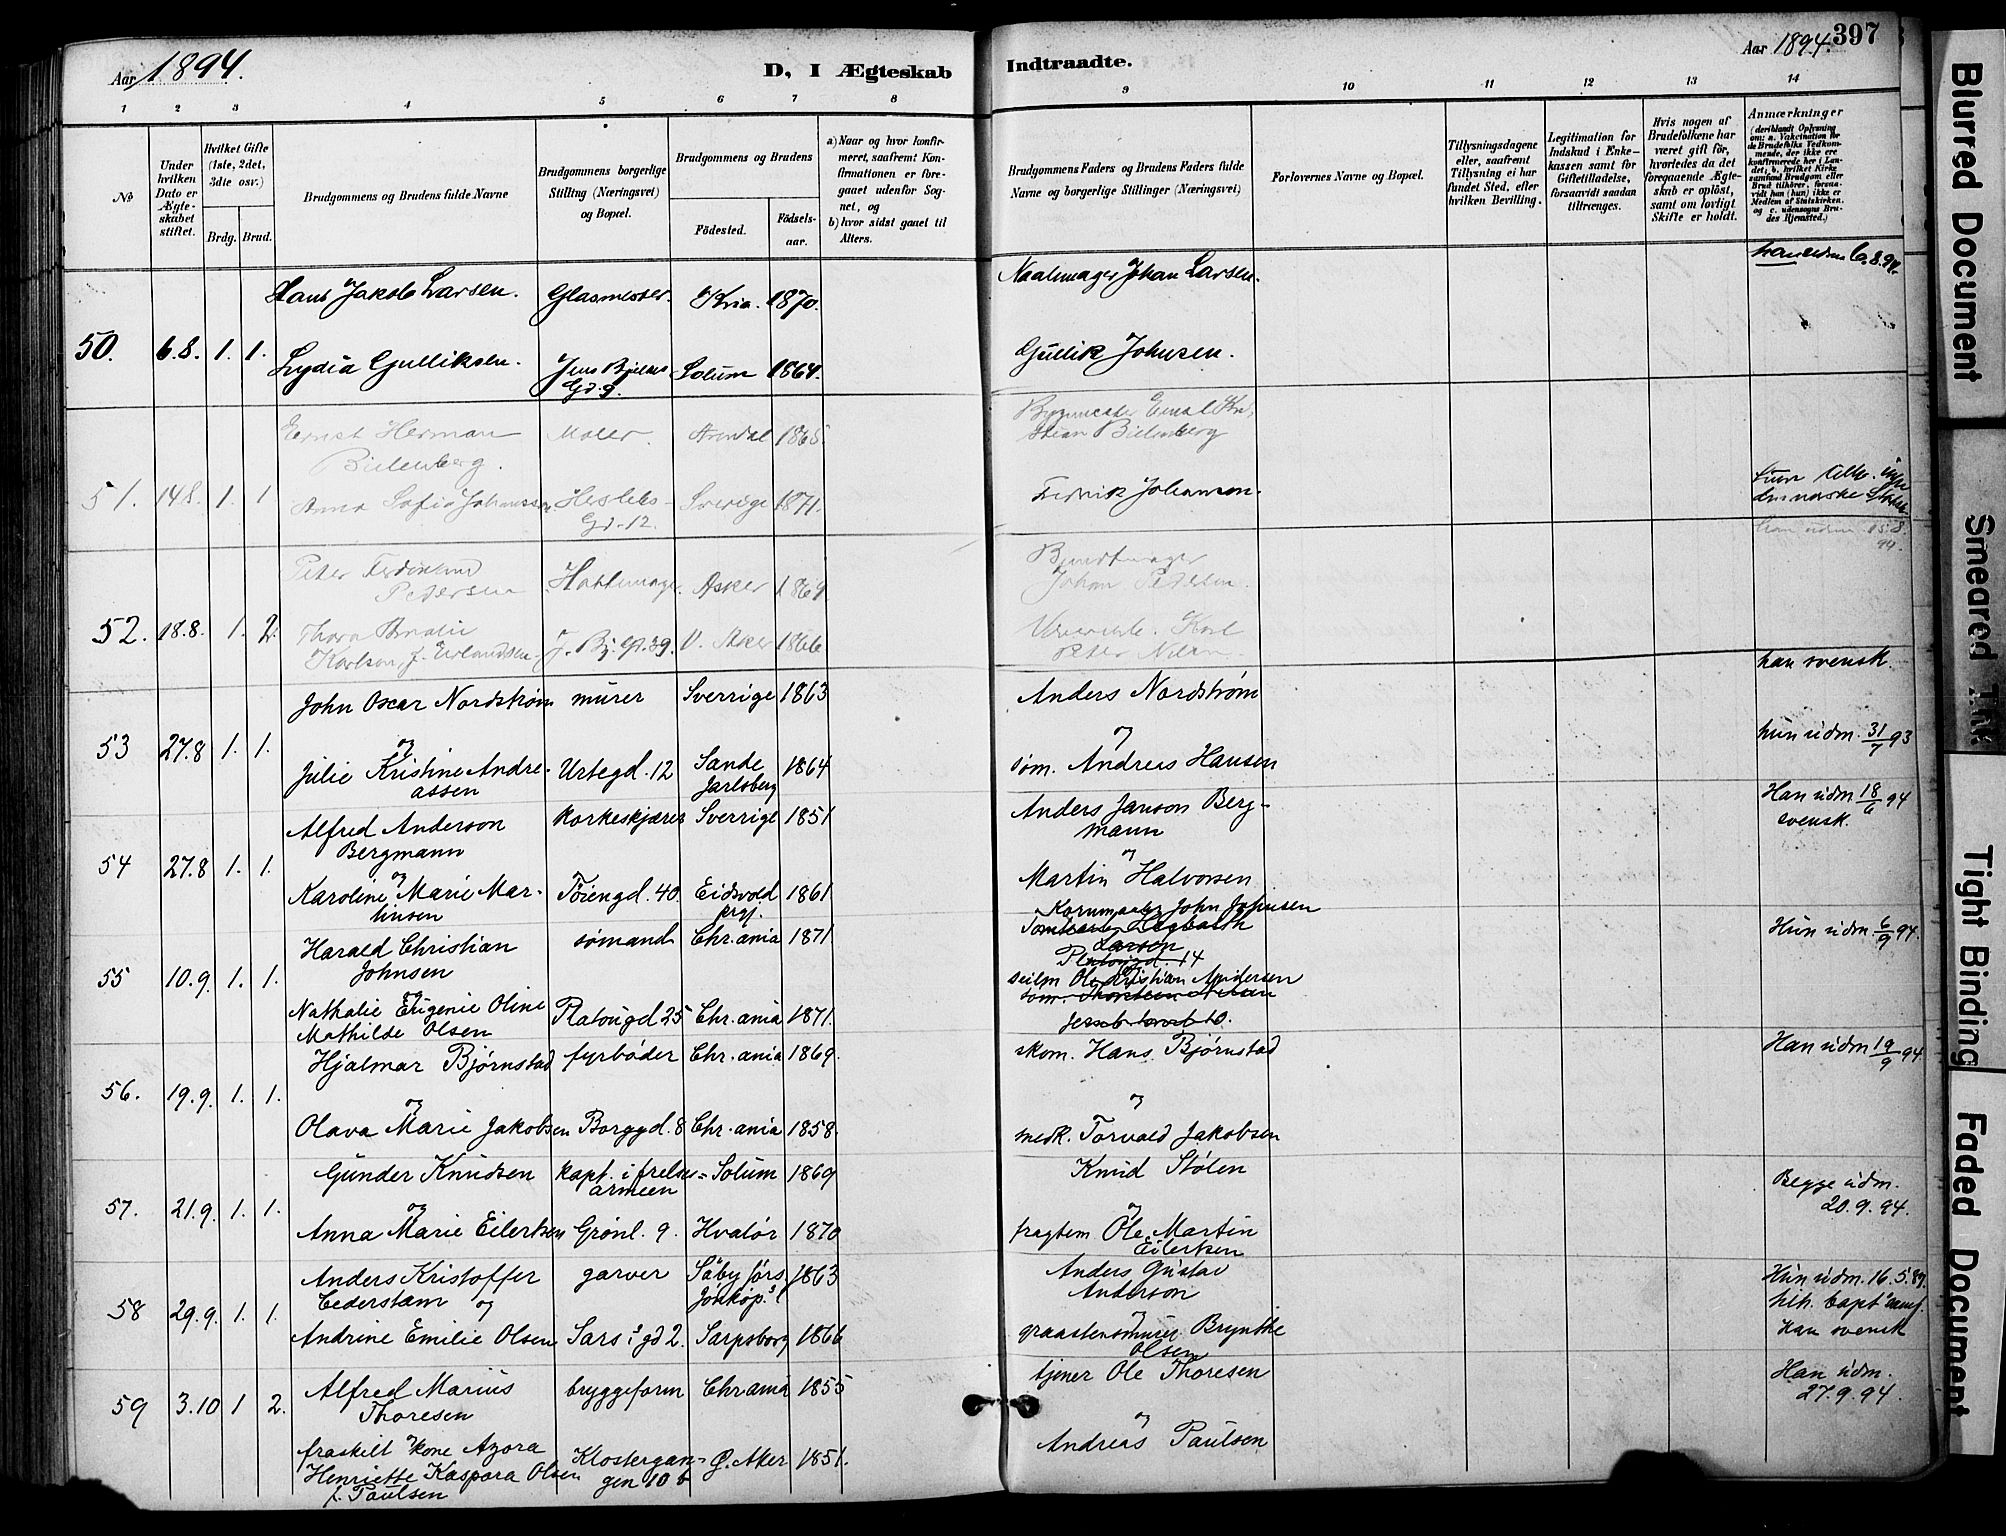 Aar 1894.
D, I Ægteskab
Indtraadte.
Aar 1894.
397
1 2 3 4 5 6 7 8 9 10 11 12 13 14
No
Under hvilken Dato er Ægteskabet stiftet.
Hvilket Gifte (1ste, 2det, 3die osv.)
Brdg. Brud.
Brudgommens og Brudens fulde Navne
Brudgommens borgerlige Stilling (Næringsvei) og Bopæl.
Brudgommens og Brudens
Födested.
Födsels-aar.
a) Naar og hvor konfirmeret, saafremt Konfirmationen er foregaaet udenfor Sognet, og
b) hvor sidst gaaet til Alters.
Brudgommens Faders og Brudens Faders fulde Navne og borgerlige Stillinger (Næringsvei)
Forlovernes Navne og Bopæl.
Tillysningsdagene eller, saafremt Tillysning ei har fundet Sted, efter hvilken Bevilling.
Legitimation for Indskud i Enkekassen samt for Giftetilladelse, forsaavidt saadan tiltrænges.
Hvis nogen af Brudefolkene har været gift før, hvorledes da det foregaaende Ægteskab er oplöst, samt om lovligt Skifte er holdt.
Anmærkninger
(deriblandt Oplysning om: a. Vakcination for de Brudefolks Vedkommende, der ikke ere konfirmerede her i Landet; b. hvilket Kirkesamfund Brudgom eller Brud tilhører, forsaavidt han (hun) ikke er Medlem af Statskirken, og c. udensogns Brudes Hjemsted.)
Hans Jakob Larsen. Glasmester. Kria. 1870. Naalemager Johan Larsen. 6.8.94.
50. 6.8. 1. 1. Lydia Gulliksen. Jens Bjelkes Gd. 9. Solum 1864. Gullik Johnsen.
Ernst Herman Bielenberg. Maler. Arendal 1865. Bielenberg
51. 14.8. 1. 1 Anna Sofia Heslets- Gd. 12. Sverige 1871. Fredrik Johanson. norske
Peter Ferdinand Pedersen Hattemager. Asker 1869 Bundtmager Johan Pedersen. 15.8. 94.
52. 18.8. 1. 2. Thora Amalie Karlson, f. Erlandsen. J. Bj. Gd. 39. V. Aker 1866 Karl Peter
John Oscar Nordstrøm murer Sverrige 1863 Anders Nordstrøm han svensk.
53 27.8 1. 1. og og hun udm. 31/7 93
Julie Kristine Andreassen Urtegd. 12 Sande Jarlsberg 1864 søm. Andreas Hansen
Alfred Anderson Bergmann korkeskjærer Sverrige 1851 Anders Janson Bergmann Han udm 18/6 94 svensk.
54 27.8 1. 1. og og
Karoline Marie Marhusen Töiengd. 40. Eidsvold prgj. 1861 Martin Halvorsen
Harald Christian Johnsen sømand Chr.ania 1871 Kornmaaler John Johnsen Larsen Platougd. 14 Hun udm. 6/9 94.
55 10.9. 1. 1. og
Nathalie Eugenie Oline Mathilde Olsen Platougd 25 Chr.ania 1871. seilm Ole Kristian Andersen 10.
Hjalmar Bjørnstad fyrbøder Chr.ania 1869. skom. Hans Bjørnstad Han udm 19/9 94.
56. 19.9. 1. 1. og og
Olava Marie Jakobsen Borggd. 8 Chr.ania 1858. medk. Torvald Jakobsen
Gunder Knudsen kapt. i frelsesarmeen Solum 1869 Knud Stølen Begge udm. 20.9.94.
57. 21.9. 1. 1. og og
Anna Marie Eilertsen Grönl. 9. Hvalör 1870 fragtem Ole Martin Eilertsen
Anders Kristoffer Cederstam og garver Säby förs Jönköp. l 1863 Anders Gustav Anderson Hun udm. 16.5.89.
58 29.9. 1. 1. han svensk
Andrine Emilie Olsen Sars's gd 2. Sarpsborg 1866 graastensmurer Brynthe Olsen
Alfred Marius Thoresen bryggeform Chrania 1855 tjener Ole Thoresen Han udm. 27.9.94.
59 3.10 1 2. og og
fraskilt kone Azora Henriette Kaspara Olsen f. Paulsen Klostergangen 10 b Ø. Aker 1851. Andreas Paulsen
Blurred Document
Smeared Ink
Tight Binding
Faded Document